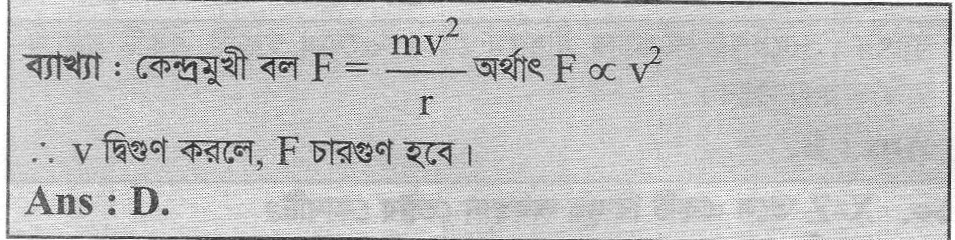 ব্যাখ্যা : কেন্দ্রমুখী বল F = mv²/r অর্থাৎ F ∝ v²
∴ v দ্বিগুণ করলে, F চারগুণ হবে।
Ans : D.